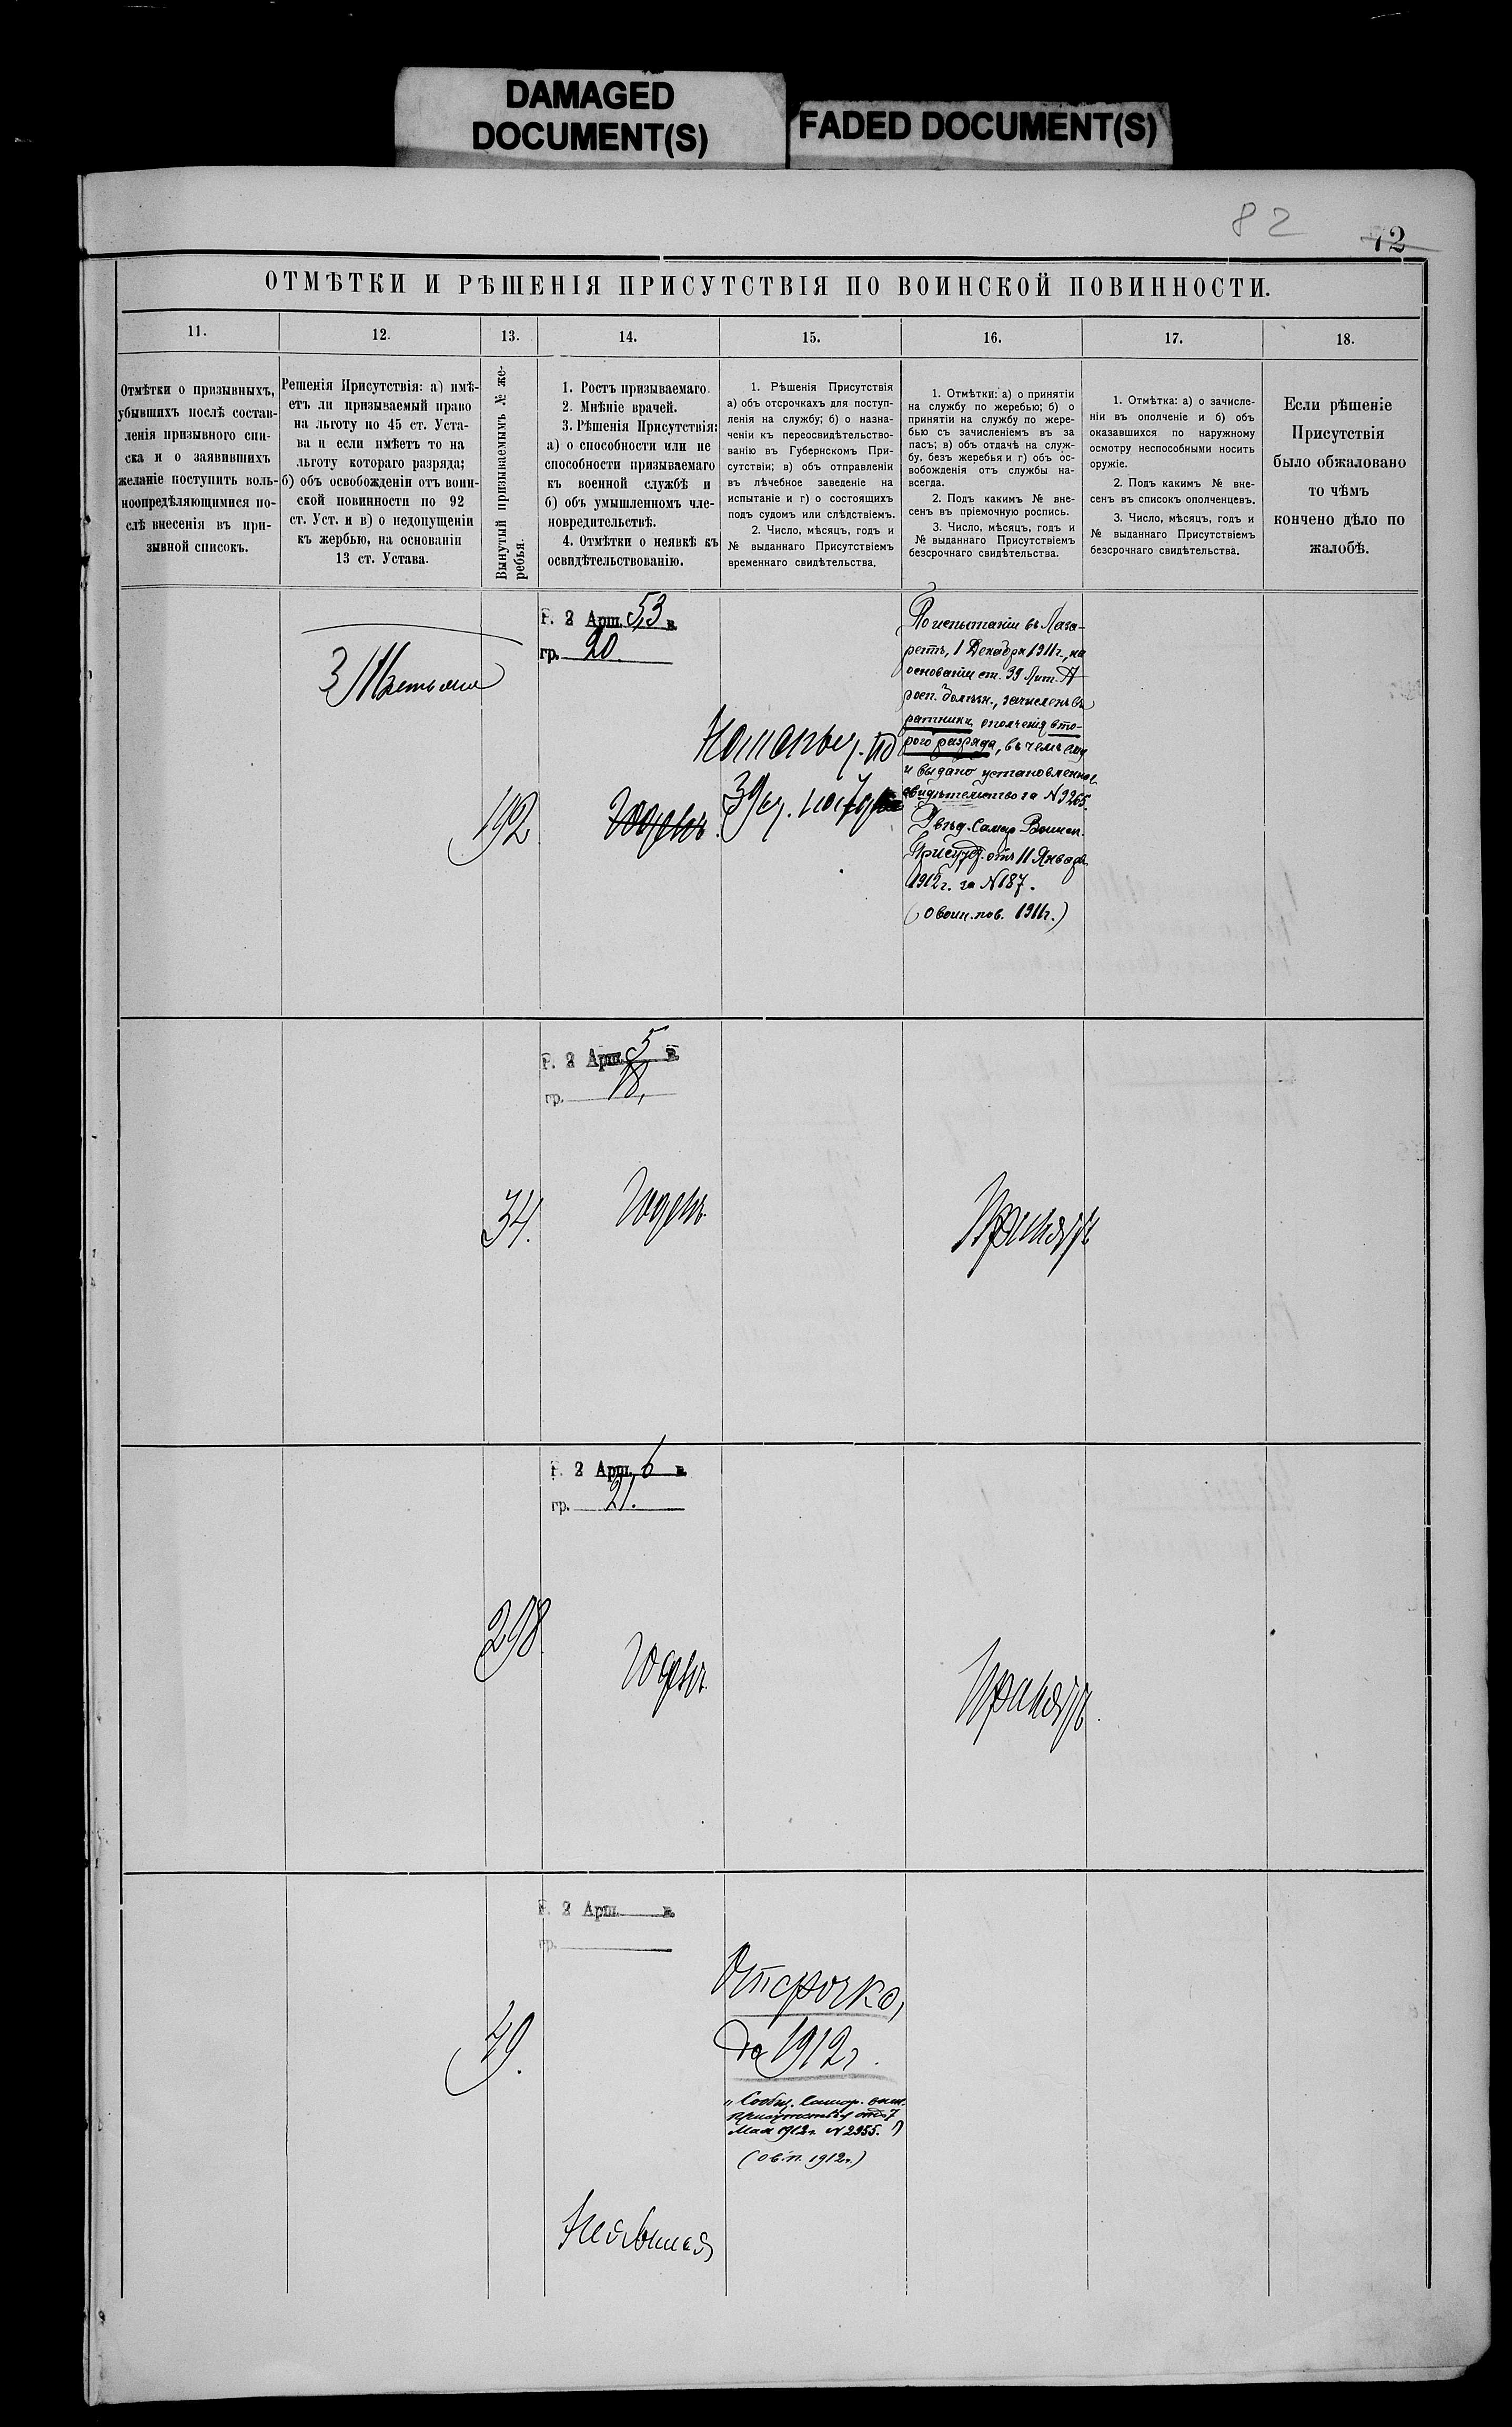 DAMAGED
DOCUMENT(S)
FADED DOCUMENT(S)
82
72
ОТМѢТКИ И РѢШЕНІЯ ПРИСУТСТВІЯ ПО ВОИНСКОЙ ПОВИННОСТИ.
11.
12.
13.
14.
15.
16.
17.
18.
Отмѣтки о призывныхъ,
убывшихъ послѣ состав-
ленія призывного спи-
ска и о заявившихъ
желаніе поступить воль-
ноопредѣляющимися по-
слѣ внесенія въ при-
зывной списокъ.
Решенія Присутствія: а) имѣ-
етъ ли призываемый право
на льготу по 45 ст. Уста-
ва и если имѣетъ то на
льготу котораго разряда;
б) объ освобожденіи отъ воин-
ской повинности по 92
ст. Уст. и в) о недопущеніи
къ жербью, на основаніи
13 ст. Устава.
Вынутый призываемымъ № же-
ребья.
1. Ростъ призываемаго.
2. Мнѣніе врачей.
3. Рѣшенія Присутствія:
а) о способности или не
способности призываемаго
къ военной службѣ и
б) объ умышленномъ чле-
новредительствѣ.
4. Отмѣтки о неявкѣ къ
освидѣтельствованію.
1. Рѣшенія Присутствія
а) объ отсрочкахъ для поступ-
ленія на службу; б) о назна-
ченіи къ переосвидѣтельство-
ванію въ Губернскомъ При-
сутствіи; в) объ отправленіи
въ лѣчебное заведеніе на
испытаніе и г) о состоящихъ
подъ судомъ или слѣдствіемъ.
2. Число, мѣсяцъ, годъ и
№ выданнаго Присутствіемъ
временнаго свидѣтельства.
1. Отмѣтки: а) о принятіи
на службу по жеребью; б) о
принятіи на службу по жере-
бью съ зачисленіемъ въ за
пасъ; в) объ отдачѣ на служ-
бу, безъ жеребья и г) объ ос-
вобожденія отъ службы на-
всегда.
2. Подъ какимъ № вне-
сенъ въ пріемочную роспись.
3. Число, мѣсяцъ, годъ и
№ выданнаго Присутствіемъ
безсрочнаго свидѣтельства.
1. Отмѣтка: а) о зачисле-
ніи въ ополченіе и б) объ
оказавшихся по наружному
осмотру неспособными носить
оружіе.
2. Подъ какимъ № вне-
сенъ въ списокъ ополченцевъ.
3. Число, мѣсяцъ, годъ и
№ выданнаго Присутствіемъ
безсрочнаго свидѣтельства.
Если рѣшеніе
Присутствія
было обжаловано
то чѣмъ
кончено дѣло по
жалобѣ.
Р. 2 Арш. 5,3 в.
гр. 20
3
192
Годенъ.
На испыт. по
39
По испытаніи въ Лаза-
ретѣ, 1 Декабря 1911г., на
основаніи ст. 39 Лит. А
росп. болѣзн., зачисленъ въ
ратники ополченія вто-
рого разряда, въ чемъ ему
и выдано установленное
свидѣтельство за № 9265.
Увѣд. Самар. Воинск.
Присутст. отъ 11 Января
1912г. за № 187.
(О воин. пов. 1911г.)
Р. 2 Арш. 5 в.
гр. 18,
34.
Годенъ
Принятъ
Р. 2 Арш. 6 в.
гр. 21.
298
Годенъ
Принятъ
Р. 2 Арш. в.
гр.
49.
Отсрочка,
до 1912г.
"Сообщ. Самар. воин.
Присутствія отъ 7
Мая 1912г. № 2955."
(о в. п. 1912г.)
Неявился